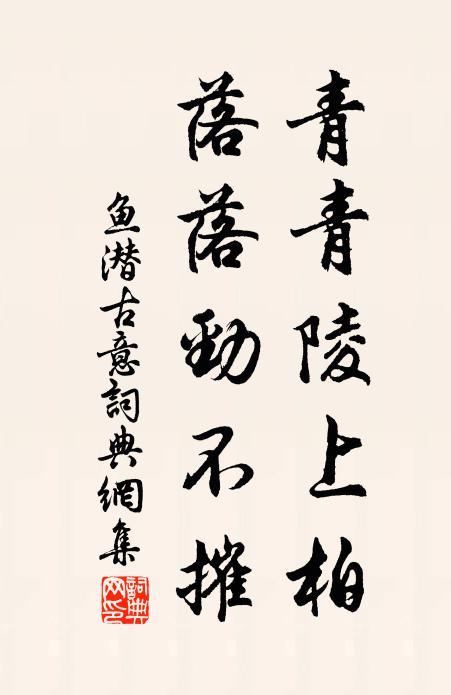 青青陵上柏
落落勁不摧
魚潜古意詞典網集
詞典網印